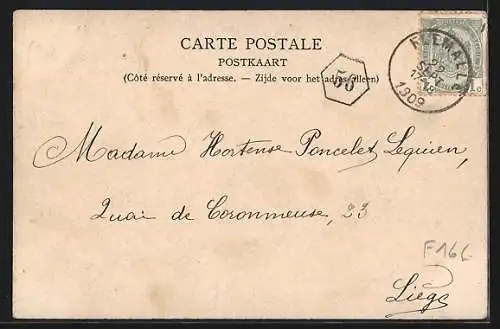 CARTE POSTALE
POSTKAART
(Côté réservé à l'adresse. — Zijde voor het adres alleen)
55
1909
1 c
Madame Hortense Poncelet Lequien,
Quai de Coronmeuse, 23
F166
Liége